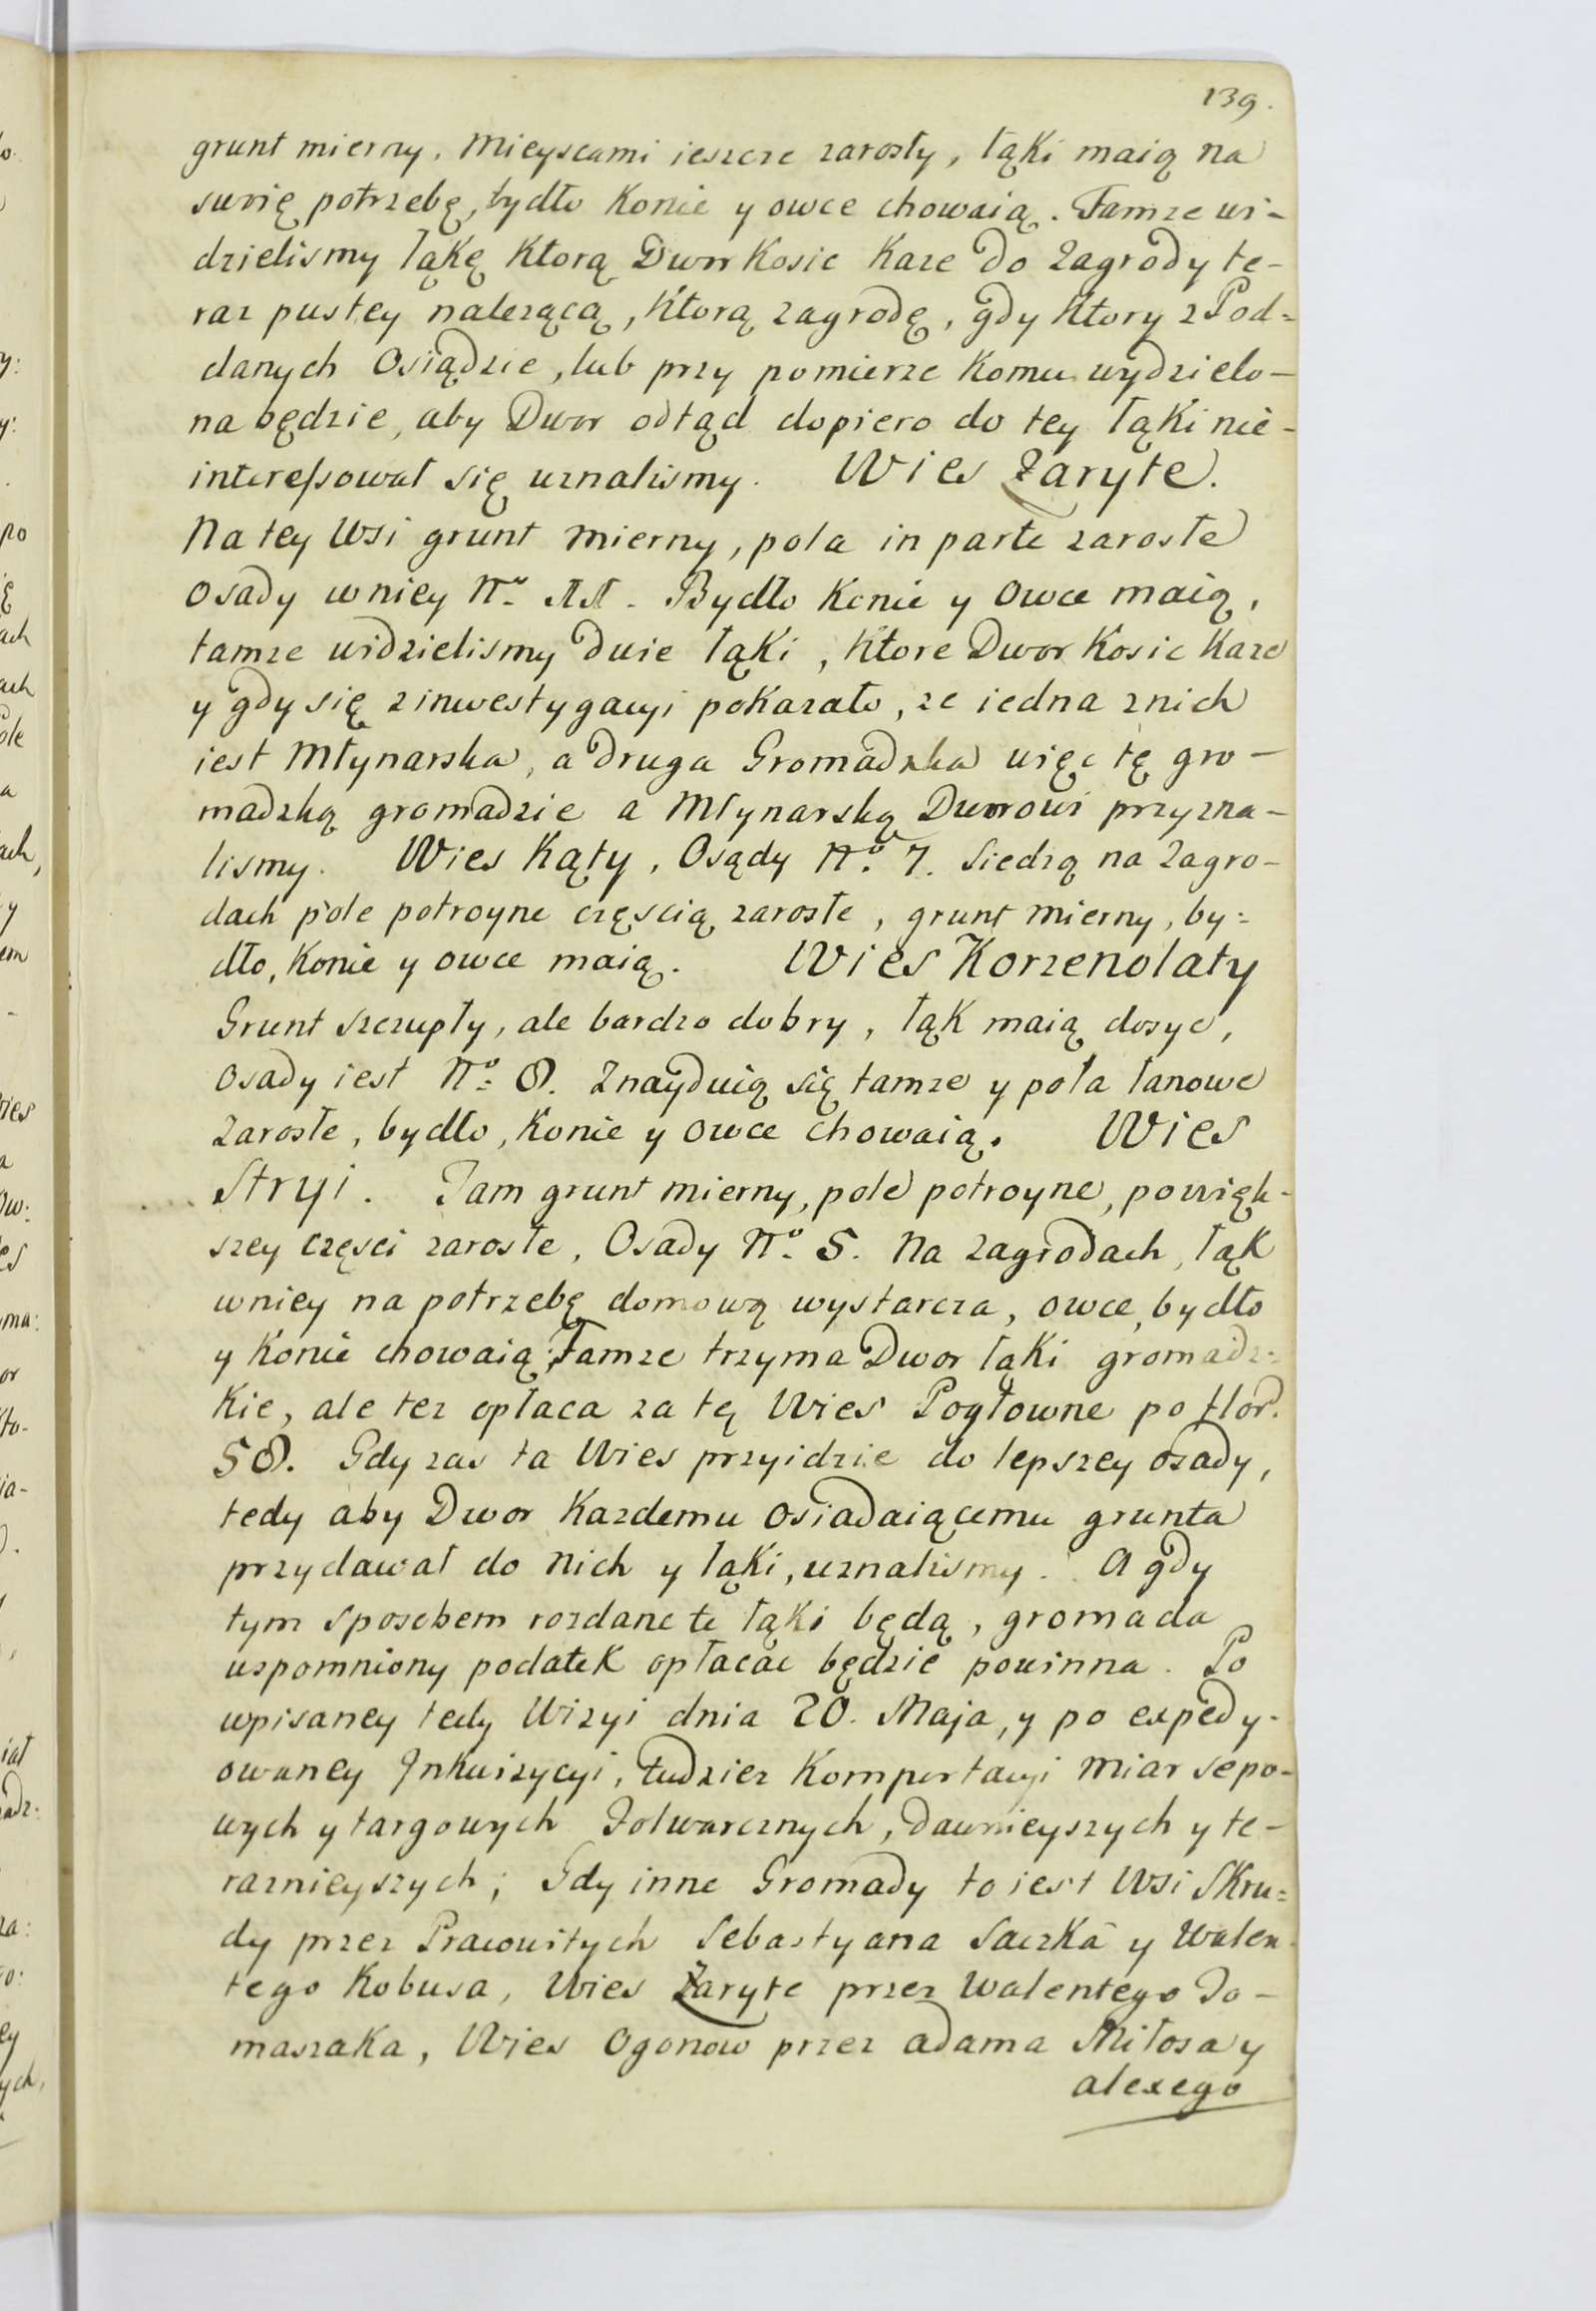 139.
grunt mierny. Mieyscami ieszcze zarosły, łąki maią na
swoię potrzebę, bydło konie y owce chowaią. Tamze wi-
dzielismy łąkę ktorą Dwor kosic kaze do zagrody te-
raz pustey nalezącą, ktorą zagrodę, gdy ktory z Pod=
danych Osiądzie, lub przy pomierze komu wydzielo-
na będzie, aby Dwor odtąd dopiero do tey łąki nie-
interessował się uznalismy. Wies Zaryte.
Na tey Wsi grunt mierny, pola in parte zarosłe
Osady w niey No. 11. Bydło konie y Owce maią,
tamze widzielismy dwie łąki, ktore Dwor kosic kaze
y gdy się z inwestygacyi pokazało, ze iedna z nich
iest Młynarska, a druga Gromadzka więc tę gro-
madzką gromadzie a Młynarską Dworowi przyzna-
lismy. Wies Kąty, Osądy No. 7. Siedzą na Zagro-
dach pole potroyne częscią zarosłe, grunt mierny, by=
dło, konie y owce maią. Wies Korzenolaty
Grunt szczupły, ale bardzo dobry, łąk maią dosyc,
Osady iest No. 8. Znayduią się tamze y pola łanowe
zarosłe, bydło, konie y owce chowaią. Wies
Stryi. Tam grunt mierny, pole potroyne, powięk-
szey częsci zarosłe, Osady No. 5. Na zagrodach, łąk
w niey na potrzebę domową wystarcza, owce, bydło
y konie chowaią, Tamze trzyma Dwor łąki gromadz=
kie, ale tez opłaca za tę Wies Pogłowne po flor.
58. Gdy zas ta Wies przyidzie do lepszey osady,
tedy aby Dwor kazdemu osiadaiącemu grunta
przydawał do nich y łąki, uznalismy. A gdy
tym sposobem rozdane te łąki będą, gromada
wspomniony podatek opłacac będzie powinna. Po
wpisaney tedy Wizyi dnia 20. Maja, y po expedy-
owaney Inkwizycyi, tudziez komportacyi miar sepo-
wych y targowych Folwarcznych, dawnieyszych y te-
raznieyszych; Gdy inne Gromady to iest Wsi Skru=
dy przez Pracowitych Sebastyana Saczka y Walen-
tego Kobusa, Wies Zaryte przez Walentego To-
maszaka, Wies Ogonow przez adama Miłosa y
alexego